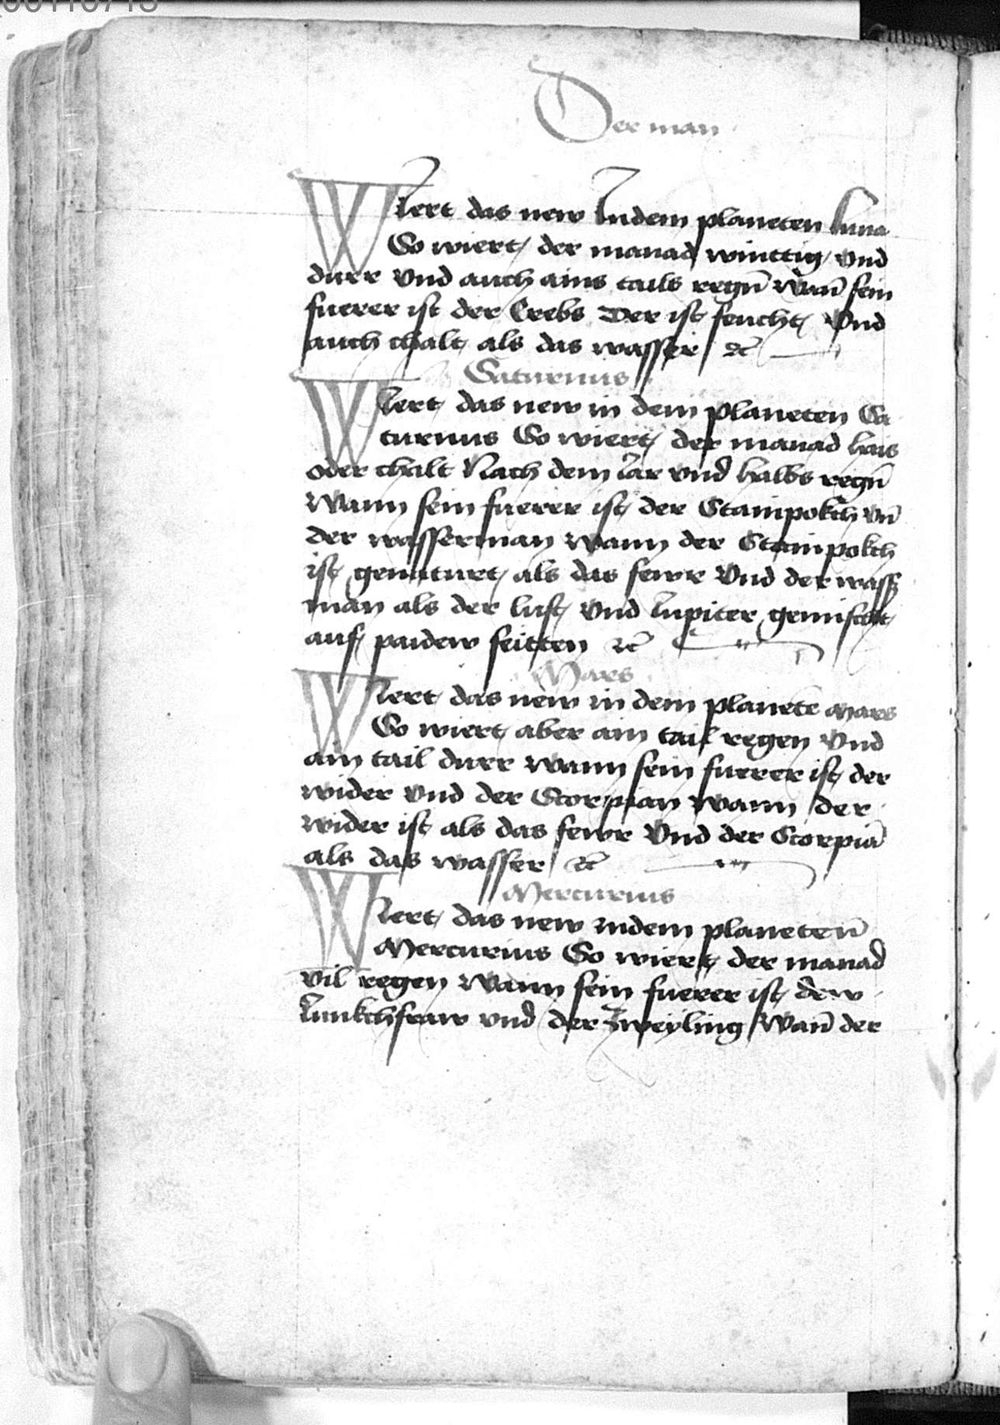 Der man
Wiert das new Indem planeten Luna
So wiert der manad winttig vnd
durr vnd auch ains tails regn̄ wan̄ sein
fuerer ist der Crebs Der ist feucht Vnd
auch chalt als das wasser ꝛc̄
Saturnus
Wiert das new in dem planeten Sa
turnus So wiert der manad hais
oder chalt Nach dem Iar vnd halbs regn̄
Wann sein fuerer ist der Stainpokch vn̄
der wasserman wann der Stainpokch
ist genaturt als das fewr Vnd der wass
man als der luft Vnd Iupiter gemischt
auf paidew seitten ꝛc̄
Mars
Wiert das new in dem planete Mars
So wiert aber ain tail regen Vnd
ain tail durr wann sein fuerer ist der
wider vnd der Scorpian wann der
wider ist als das fewr Vnd der Scorpiā
als das wasser ꝛc̄
Mercurius
Wiert das new Indem planeten̄
Mercurius So wiert der manad
vil regen Wann sein fuerer ist dew
Iunkchfraw vnd der Zweyling Wan̄ der